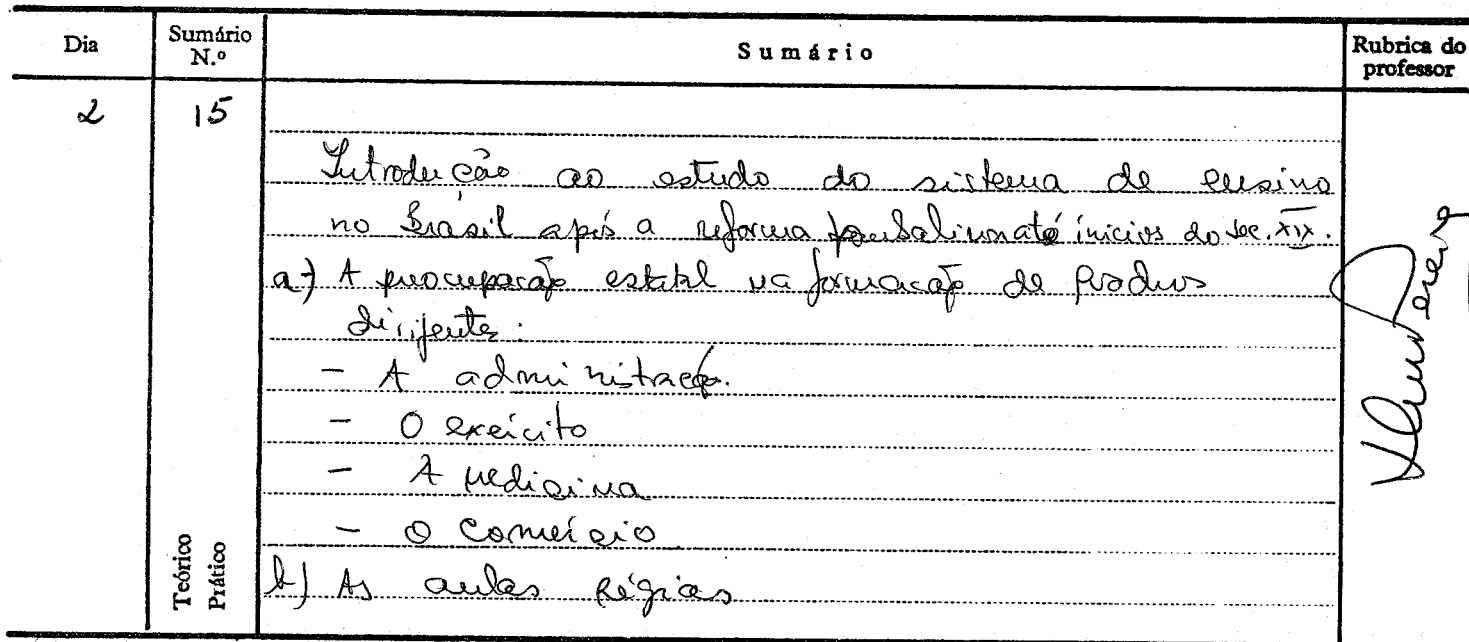 Dia Sumário N.º Sumário Rubrica do professor
2 15
Introdução ao estudo do sistema de ensino
no Brasil após a reforma pombalina até inícios do séc. XIX.
a) A preocupação estatal na formação de quadros
dirigentes:
- A administração.
- O exército
- A medicina
- O Comércio
b) As aulas Régias
Teórico
Prático